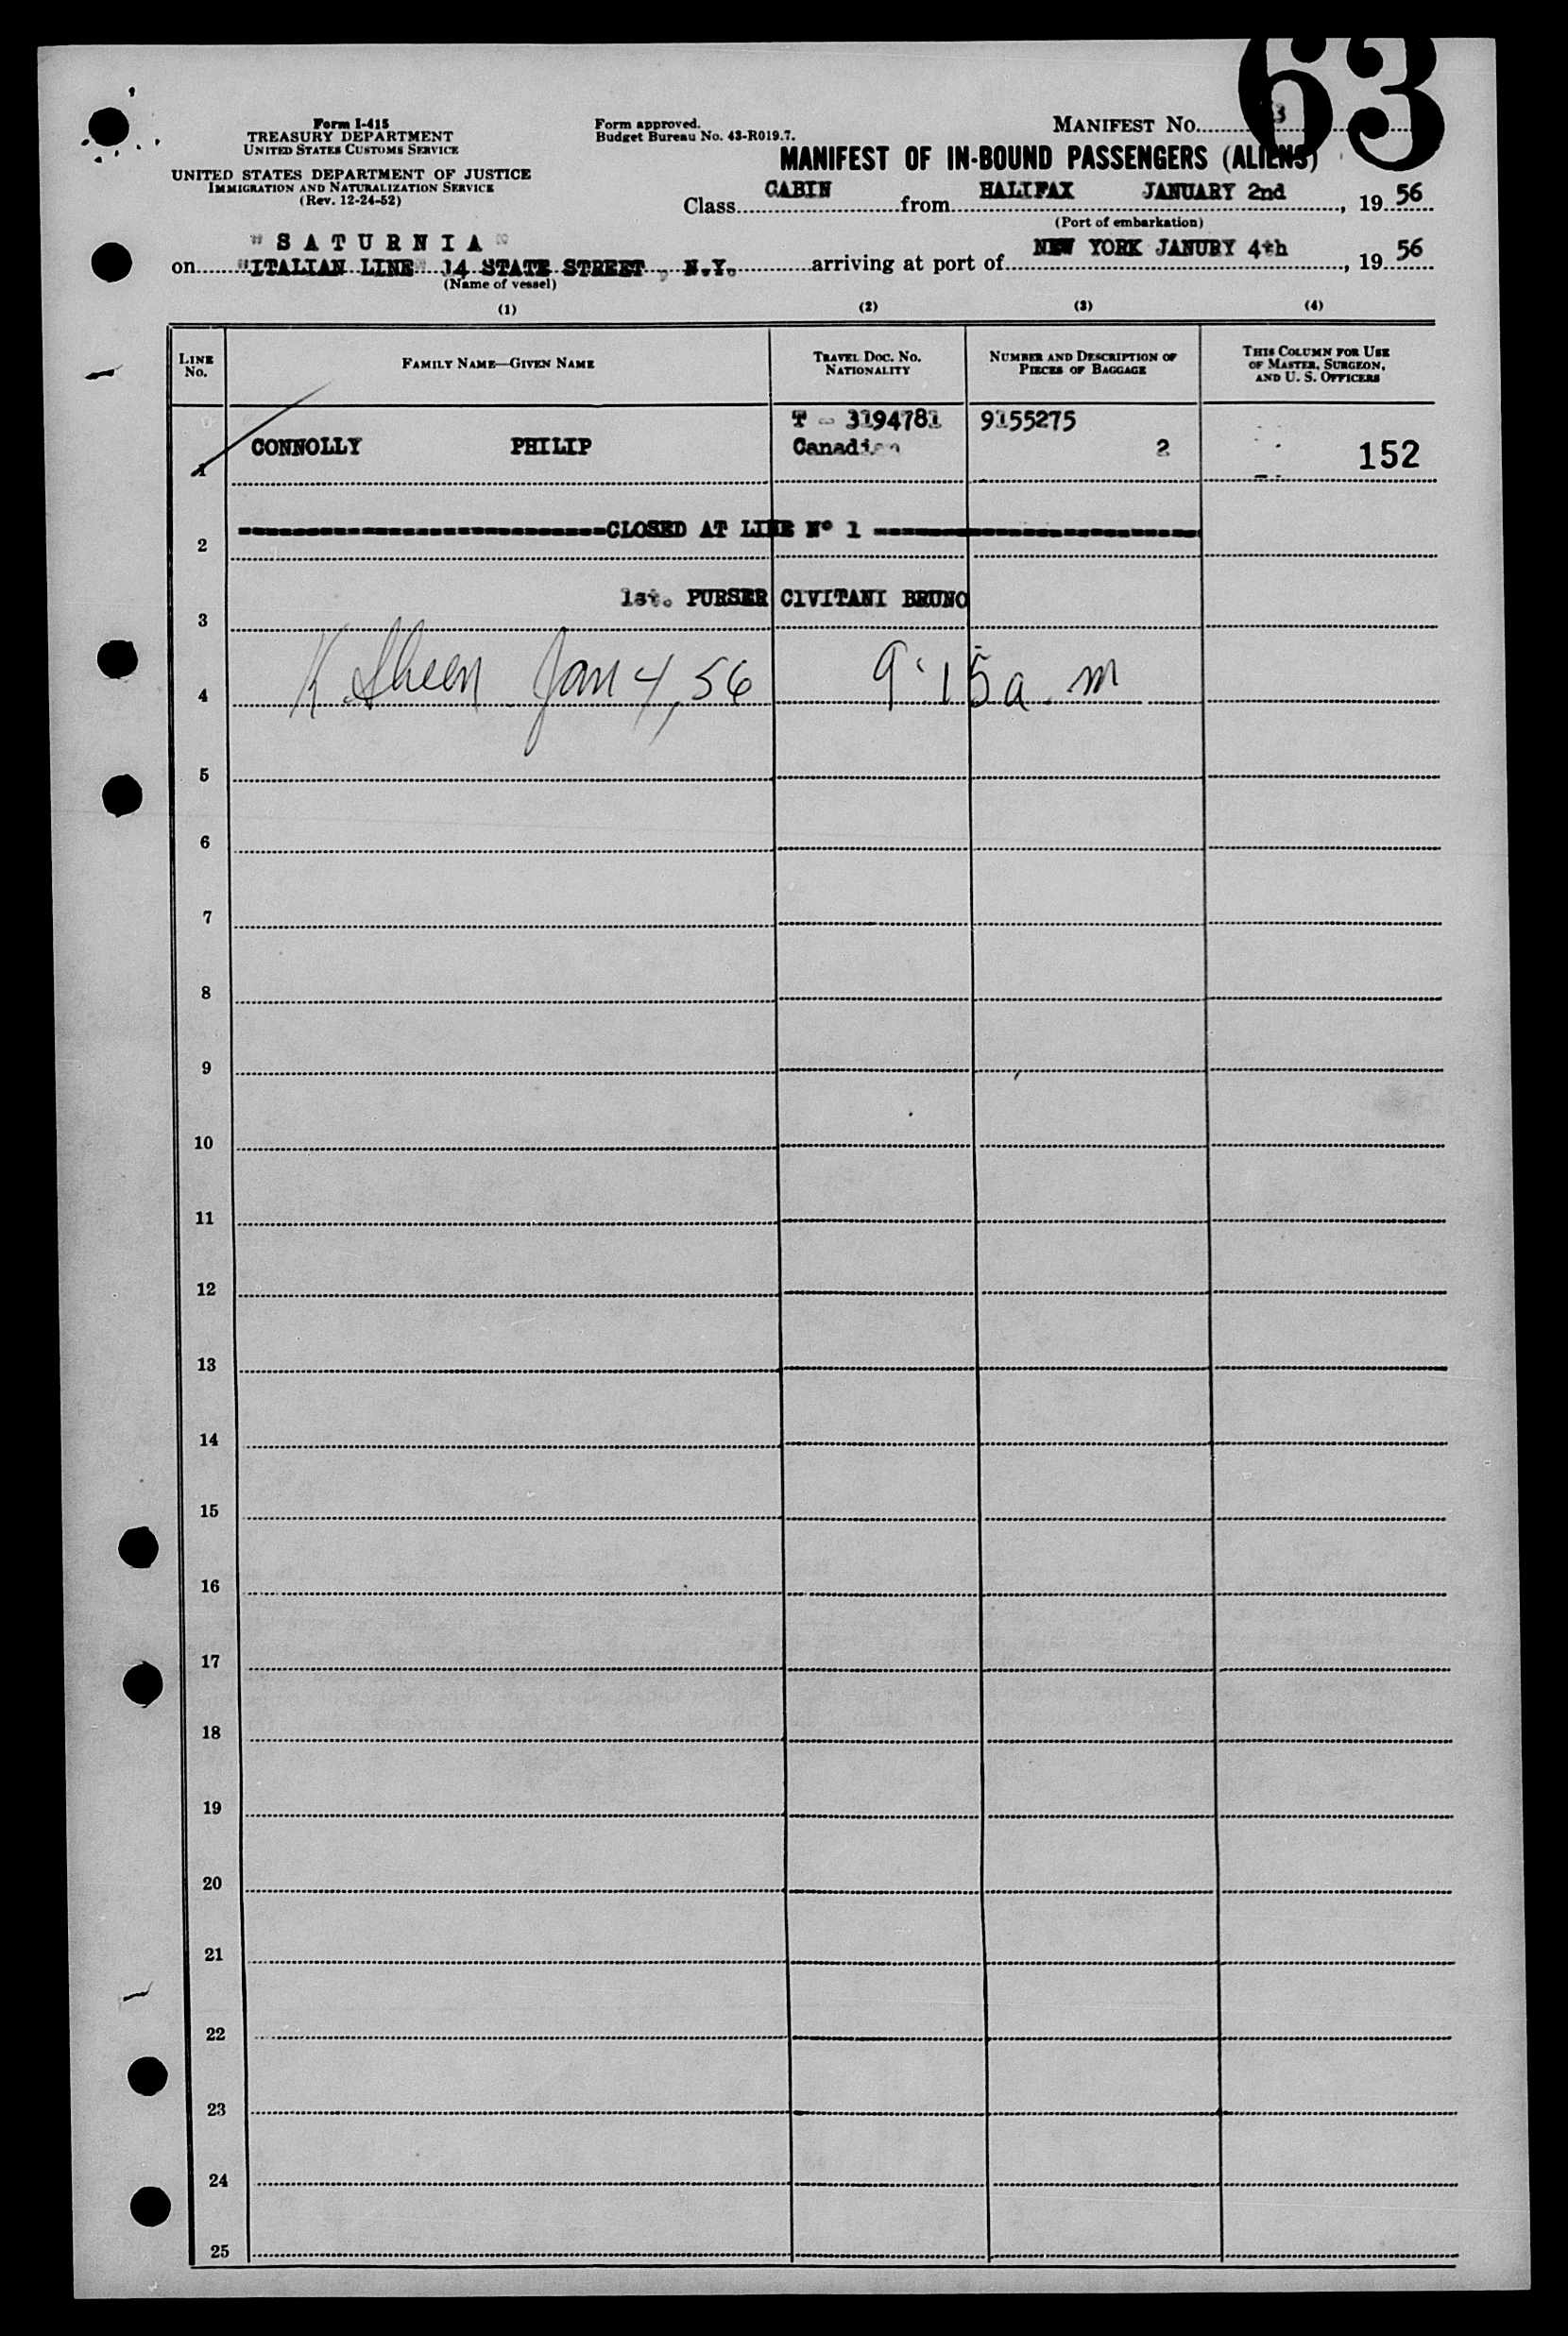 63
Form I-415
TREASURY DEPARTMENT
UNITED STATES CUSTOMS SERVICE
UNITED STATES DEPARTMENT OF JUSTICE
IMMIGRATION AND NATURALIZATION SERVICE
(Rev. 12-24-52)
Form approved.
Budget Bureau No. 43-R019.7.
MANIFEST NO. 3
MANIFEST OF IN-BOUND PASSENGERS (ALIENS)
Class CABIN from HALIFAX JANUARY 2nd, 19 56
(Port of embarkation)
"SATURNIA"
on "ITALIAN LINE" 14 STATE STREET, N.Y. arriving at port of NEW YORK JANURY 4th, 19 56
(Name of vessel)
(1) (2) (3) (4)
LINE NO. FAMILY NAME—GIVEN NAME TRAVEL DOC. NO. NATIONALITY NUMBER AND DESCRIPTION OF PIECES OF BAGGAGE THIS COLUMN FOR USE OF MASTER, SURGEON, AND U. S. OFFICERS
T - 3194781 9155275
1 CONNOLLY PHILIP Canadian 2 152
2 CLOSED AT LINE Nº 1
3 1st. PURSER CIVITANI BRUNO
4 K Sheen Jan 4, 56 9:15 a.m
5
6
7
8
9
10
11
12
13
14
15
16
17
18
19
20
21
22
23
24
25